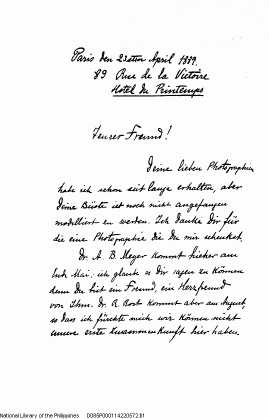 Paris den 23sten April 1889.
89 Rue de la Victoire
Hotel du Printemps
Teurer Freund!
Deine lieben Photographien
habe ich schon seit lange erhalten, aber
Deine Büste ist noch nicht angefangen
modelliert zu werden. Ich danke Dir für
die eine Photographie die Du mir schenkst.
Dr. A. B. Meyer kommt hieher am
Ende Mai: ich glaube es Dir sagen zu können
denn Du bist ein Freund, ein Herzfreund
von Ihm. Dr. R. Rost kommt aber am August,
so dass ich fürchte mich wir können nicht
unsere erste Zusammenkunft hier haben.
National Library of the Philippines